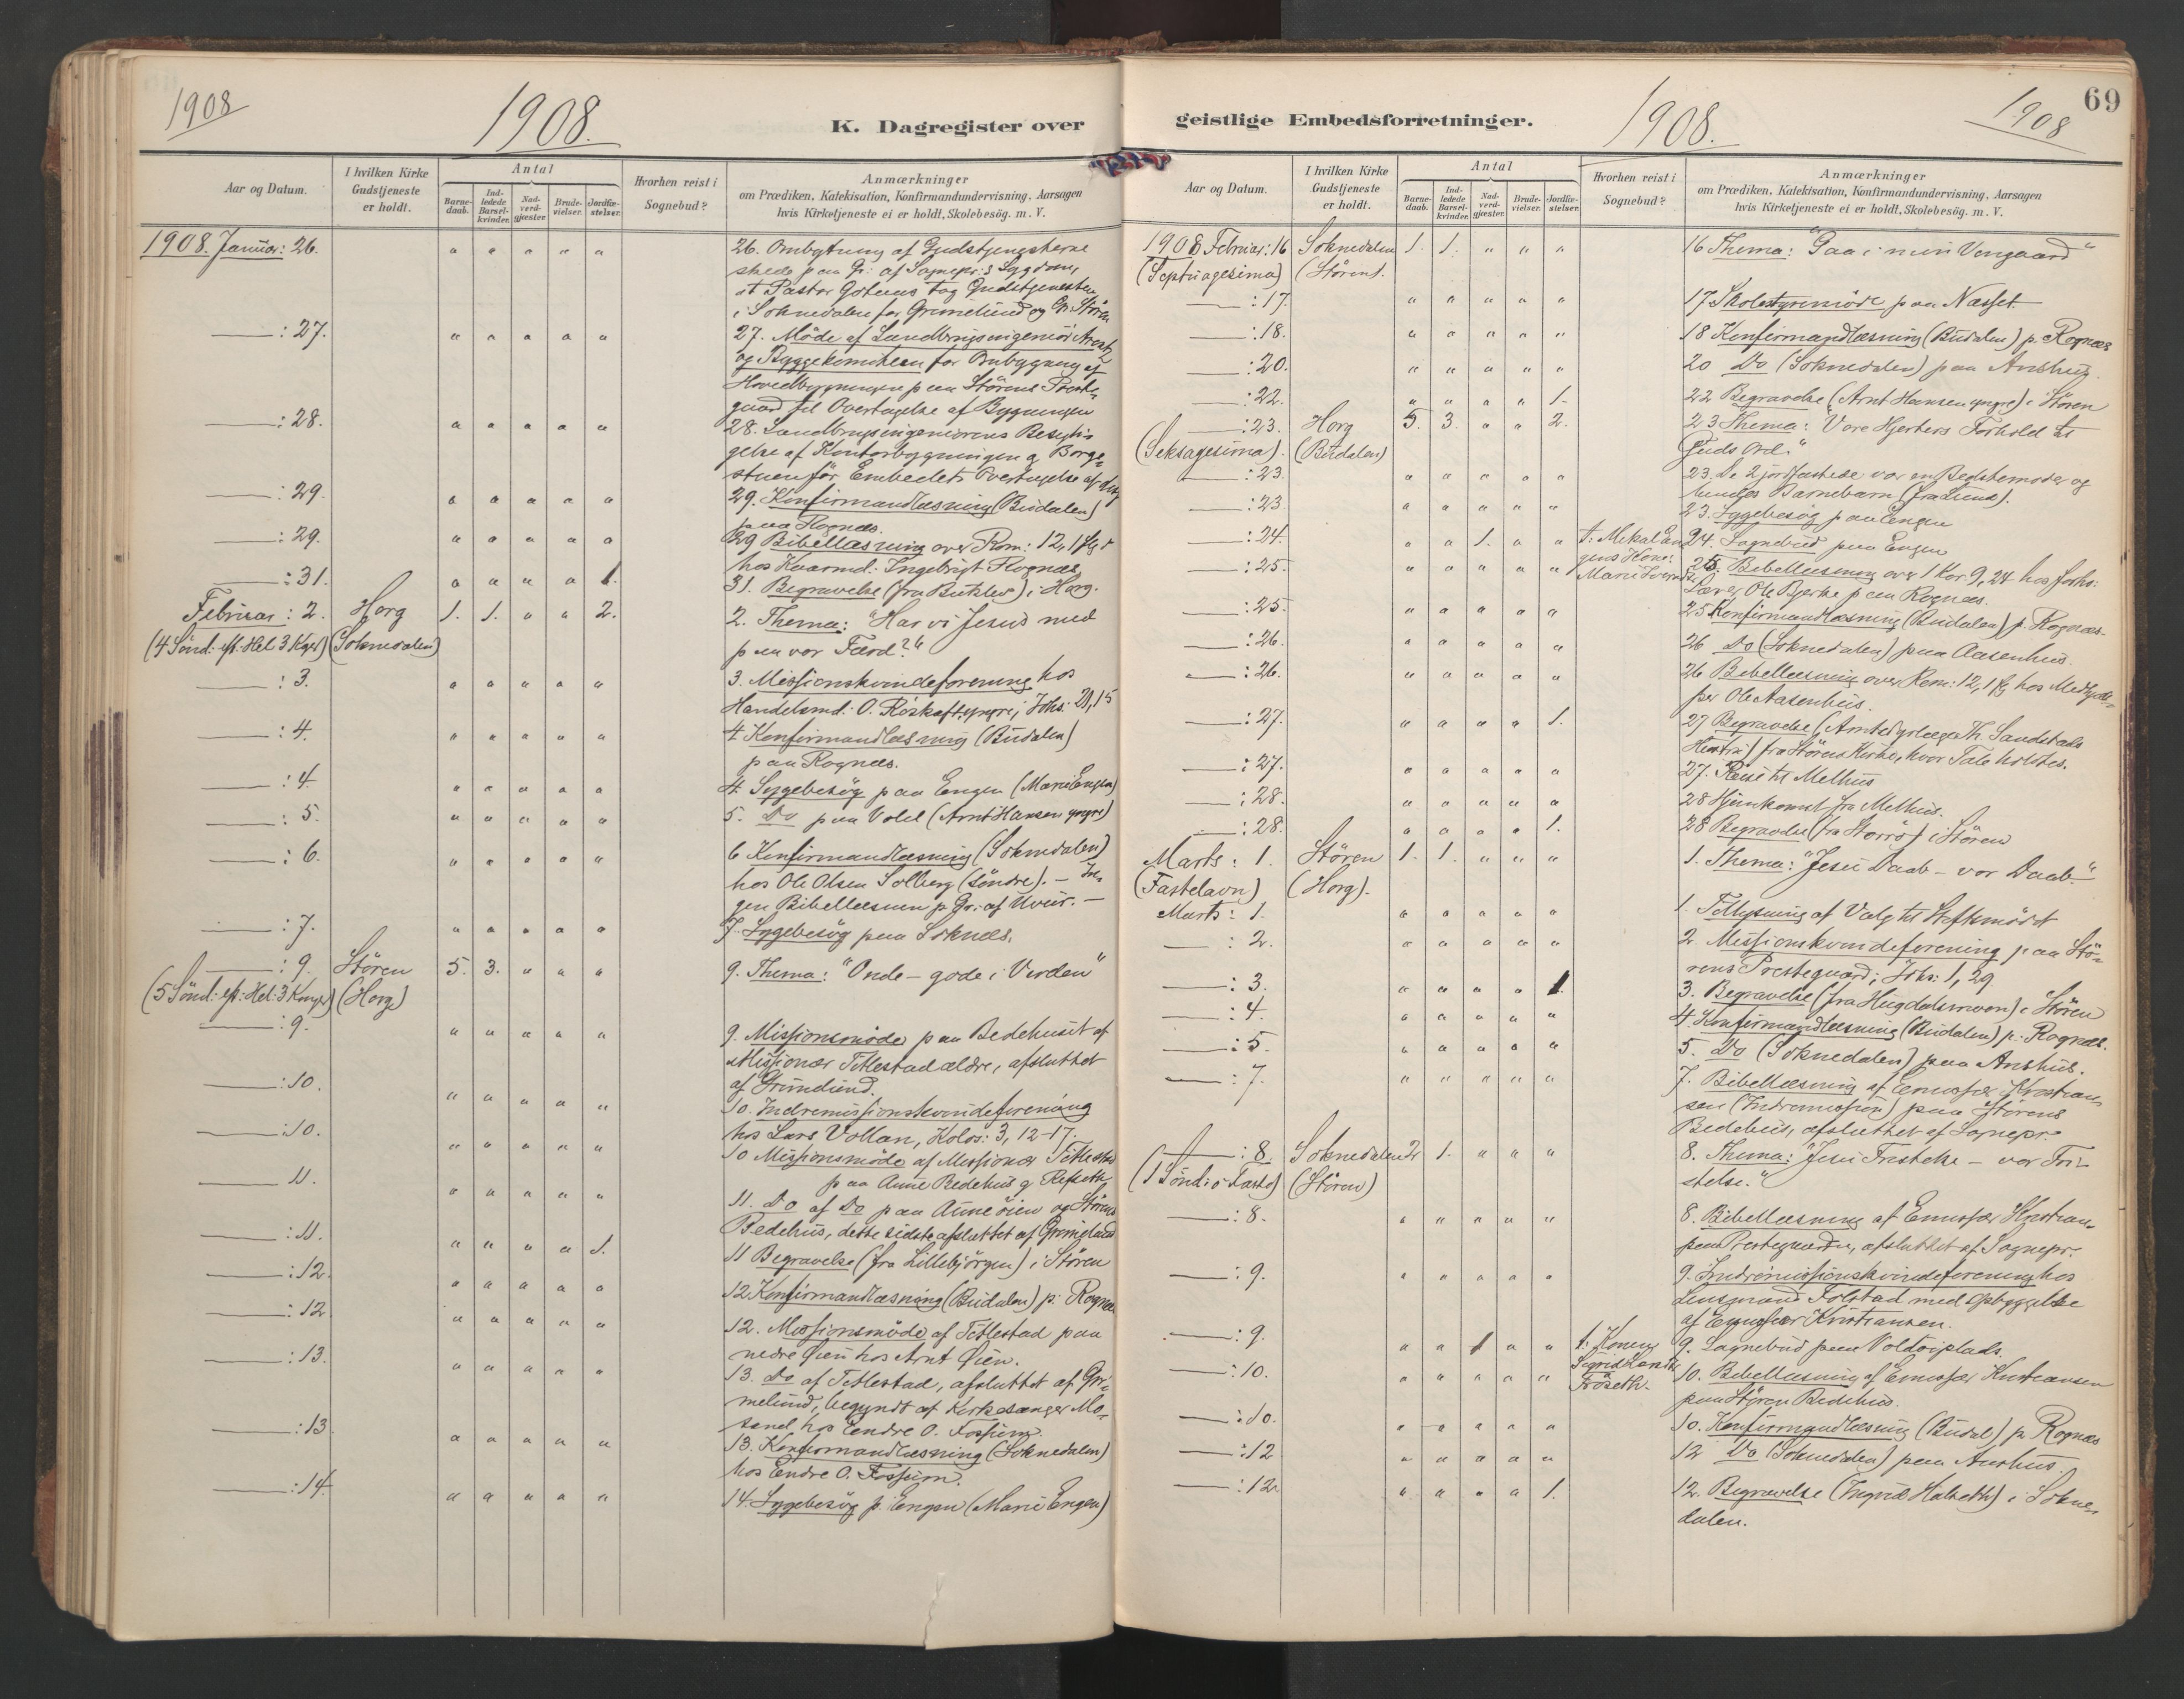 1908
1908.
K. Dagregister over
Aar og Datum.
I hvilken Kirke
Gudstjeneste
er holdt.
Antal
Barne-
daab.
Ind-
ledede
Barsel-
kvinder.
Nad-
verd-
gjæster
Brude-
vielser.
Jordfæ-
stelser.
Hvorhen reist i
Sognebud?
Anmærkninger
om Prædiken, Katekisation, Konfirmandundervisning, Aarsagen
hvis Kirketjeneste ei er holdt, Skolebesög. m. V.
1908. Januar: 26. " " " " " 26. Ombytning af Gudstjenesterne
skede paa Gr: af Sognepr:s Sygdom,
at Pastor tog Gudstjenesten
i Soknedalen for Grimelund og Gr. Stören
—: 27. " " " " " 27. Möde af Landbrugsingeniör
og Byggekomiteen for Ombygning af
Hovedbygningen paa Störens Preste-
gaard til Overtagelse af Bygningen
—: 28. " " " " " 28. Landbrugsingeniörens Besigti-
gelse af Kontorbygningen og Borge-
stuen för Embedets Overtagelse af
—: 29. " " " " " 29. Konfirmandlæsning (Budalen)
paa Rognæs.
—: 29. " " " " " 29 Bibellæsning over Rom: 12, 1 flg
hos Kvarmd: Ingebrigt Rognæs
—: 31. " " " " 1. 31. Begravelse (fra ) i Horg.
Februar: 2. Horg 1. 1. " " 2. 2. Thema: "Har vi Jesus med
(4 Sönd: eft: Hel 3 Kger) (Soknedalen) paa vor Færd?"
—: 3. " " " " " 3. Missionskvindeforening hos
Handelsmd: O. Röskaft yngre, Johs: 21, 15
—: 4. " " " " " 4 Konfirmandlæsning (Budalen)
paa Rognæs.
—: 4. " " " " " 4 Sygebesög paa Engen (Marie Engen)
—: 5. " " " " " 5. Do paa Vold (Arnt Hansen yngre)
—: 6. " " " " " 6 Konfirmandlæsning (Soknedalen)
hos Ole Olsen Solberg (söndre). – In-
gen Bibellæsnin p. Gr: af Uveir. –
—: 7. " " " " " 7. Sygebesög paa Soknæs.
—: 9. Stören 5. 3. " " " 9. Thema: "Onde – gode i Verden"
(5 Sönd: eft: Hel: 3 Konger) (Horg)
—: 9. " " " " " 9. Missionsmöde paa Bedehuset af
Missionær Titlestad ældre, afsluttet
af Grimelund.
—: 10. " " " " " 10. Indremissionskvindeforening
hos Lars Vollan, Kolos: 3, 12-17.
—: 10. " " " " " 10 Missionsmöde af Missionær Titlestad
paa Aune Bedehus g Refseth
— 11. " " " " " 11. Do af Do paa Auneöien og Störens
Bedehus, dette sidste afsluttet af Grimelund
—: 11. " " " " 1. 11 Begravelse (fra Lillebjörgen) i Stören
—: 12. " " " " " 12 Konfirmandlæsning (Budalen) p: Rognæs
—: 12 " " " " " 12. Missionsmöde af Titlestad paa
nedre Öien hos Arnt Öien.
—: 13. " " " " " 13. Do af Titlestad, afsluttet af Gri-
melund, begyndt af Kirkesanger Mo-
sand hos Endre O. Fossum.
—: 13 " " " " " 13. Konfirmandlæsning (Soknedalen)
hos Endre O. Fossum.
—: 14. " " " " " 14. Sygebesög p. Engen (Marie Engen)
geistlige Embedsforretninger.
1908.
1908
69
Aar og Datum.
I hvilken Kirke
Gudstjeneste
er holdt.
Antal
Barne-
daab.
Ind-
ledede
Barsel-
kvinder.
Nad-
verd-
gjæster
Brude-
vielser.
Jordfæ-
stelser.
Hvorhen reist i
Sognebud?
Anmærkninger
om Prædiken, Katekisation, Konfirmandundervisning, Aarsagen
hvis Kirketjeneste ei er holdt, Skolebesög. m. V.
1908 Februar: 16 Soknedalen 1. 1. " " " 16 Thema: "Gaa i min Vingaard"
(Septuagesima) (Stören).
—: 17. " " " " " 17 Skolestyremöde paa Næsset
—: 18. " " " " " 18 Konfirmandlæsning (Budalen) p. Rognæs
—: 20. " " " " " 20 Do (Soknedalen) paa Anshus.
—: 22. " " " " 1. 22 Begravelse (Arnt Hansen yngre) i Stören
—: 23. Horg 5. 3. " " 2. 23 Thema: "Vore Hjerters Forhold til
(Seksagesima). (Budalen) Guds Ord."
—: 23 " " " " " 23. De 2 jordfæstede var en Bedstemoder og
hendes Barnebarn (fra Lund).
—: 23. " " " " " 23. Sygebesög paa Engen
—: 24. " " 1. " " t. Mikal En- 24. Sognebud paa Engen
gens Kone:
Marie
—: 25. " " " " " 25. Bibellæsning over 1 Kor. 9, 24 hos Johs:
Ole Bjerke paa Rognæs.
—: 25. " " " " " 25 Konfirmandlæsning (Budalen) p. Rognæs
—: 26. " " " " " 26 Do (Soknedalen) paa Aasenhus.
—: 26. " " " " " 26 Bibellæsning over Rom: 12, 1 flg hos Medhjæl-
per Ole Aasenhus.
—: 27. " " " " 1. 27 Begravelse (Amtsdyrlæge Th. Sandstads
Hustru) fra Störens Kirke, hvor Tale holdtes.
—: 27. " " " " " 27. Reise til Melhus
—: 28. " " " " " 28 Hjemkomst fra Melhus.
—: 28. " " " " 1. 28 Begravelse (fra Storrö) i Stören
Marts: 1. Stören 1. 1. " " " 1. Thema: "Jesu Daab – vor Daab."
(Fastelavn) (Horg).
Marts: 1. " " " " " 1. Tillysning af Valg til Stiftsmödet
—: 2. " " " " " 2. Missionskvindeforening paa Stö-
rens Prestegaard; Johs: 1, 29.
—: 3. " " " " 1. 3. Begravelse (fra Hugdalsmoen) i Stören
—: 4. " " " " " 4. Konfirmandlæsning (Budalen) p. Rognæs.
—: 5. " " " " " 5. Do (Soknedalen) paa Anshus.
—: 7. " " " " " 7. Bibellæsning af Emissær Kristian-
sen (Indremission) paa Störens
Bedehus, afsluttet af Sognepr.
—: 8. Soknedalen 2 1. " " " 8. Thema: "Jesu Fristelse – vor Fri-
(1 Sönd: i Faste) (Stören) stelse."
—: 8. " " " " " 8. Bibellæsning af Emissær Kristian-
paa Prestegaarden, afsluttet af Sognepr.
—: 9. " " " " " 9. Indremissionskvindeforening hos
Lensmand Folstad med Opbyggelse
af Emissær Kristiansen.
—: 9. " " 1 " " t. Konen 9. Sognebud paa Voldöiplads.
Sigrid
Fröseth.
—: 10. " " " " " 10. Bibellæsning af Emissær Kristiansen
paa Stören Bedehus.
—: 10. " " " " " 10. Konfirmandlæsning (Budal) p. Rognæs
—: 12 " " " " " 12 Do (Soknedalen) paa Anshus.
—: 12. " " " " 1. 12. Begravelse (Ingrid Halseth) i Sokne-
dalen.